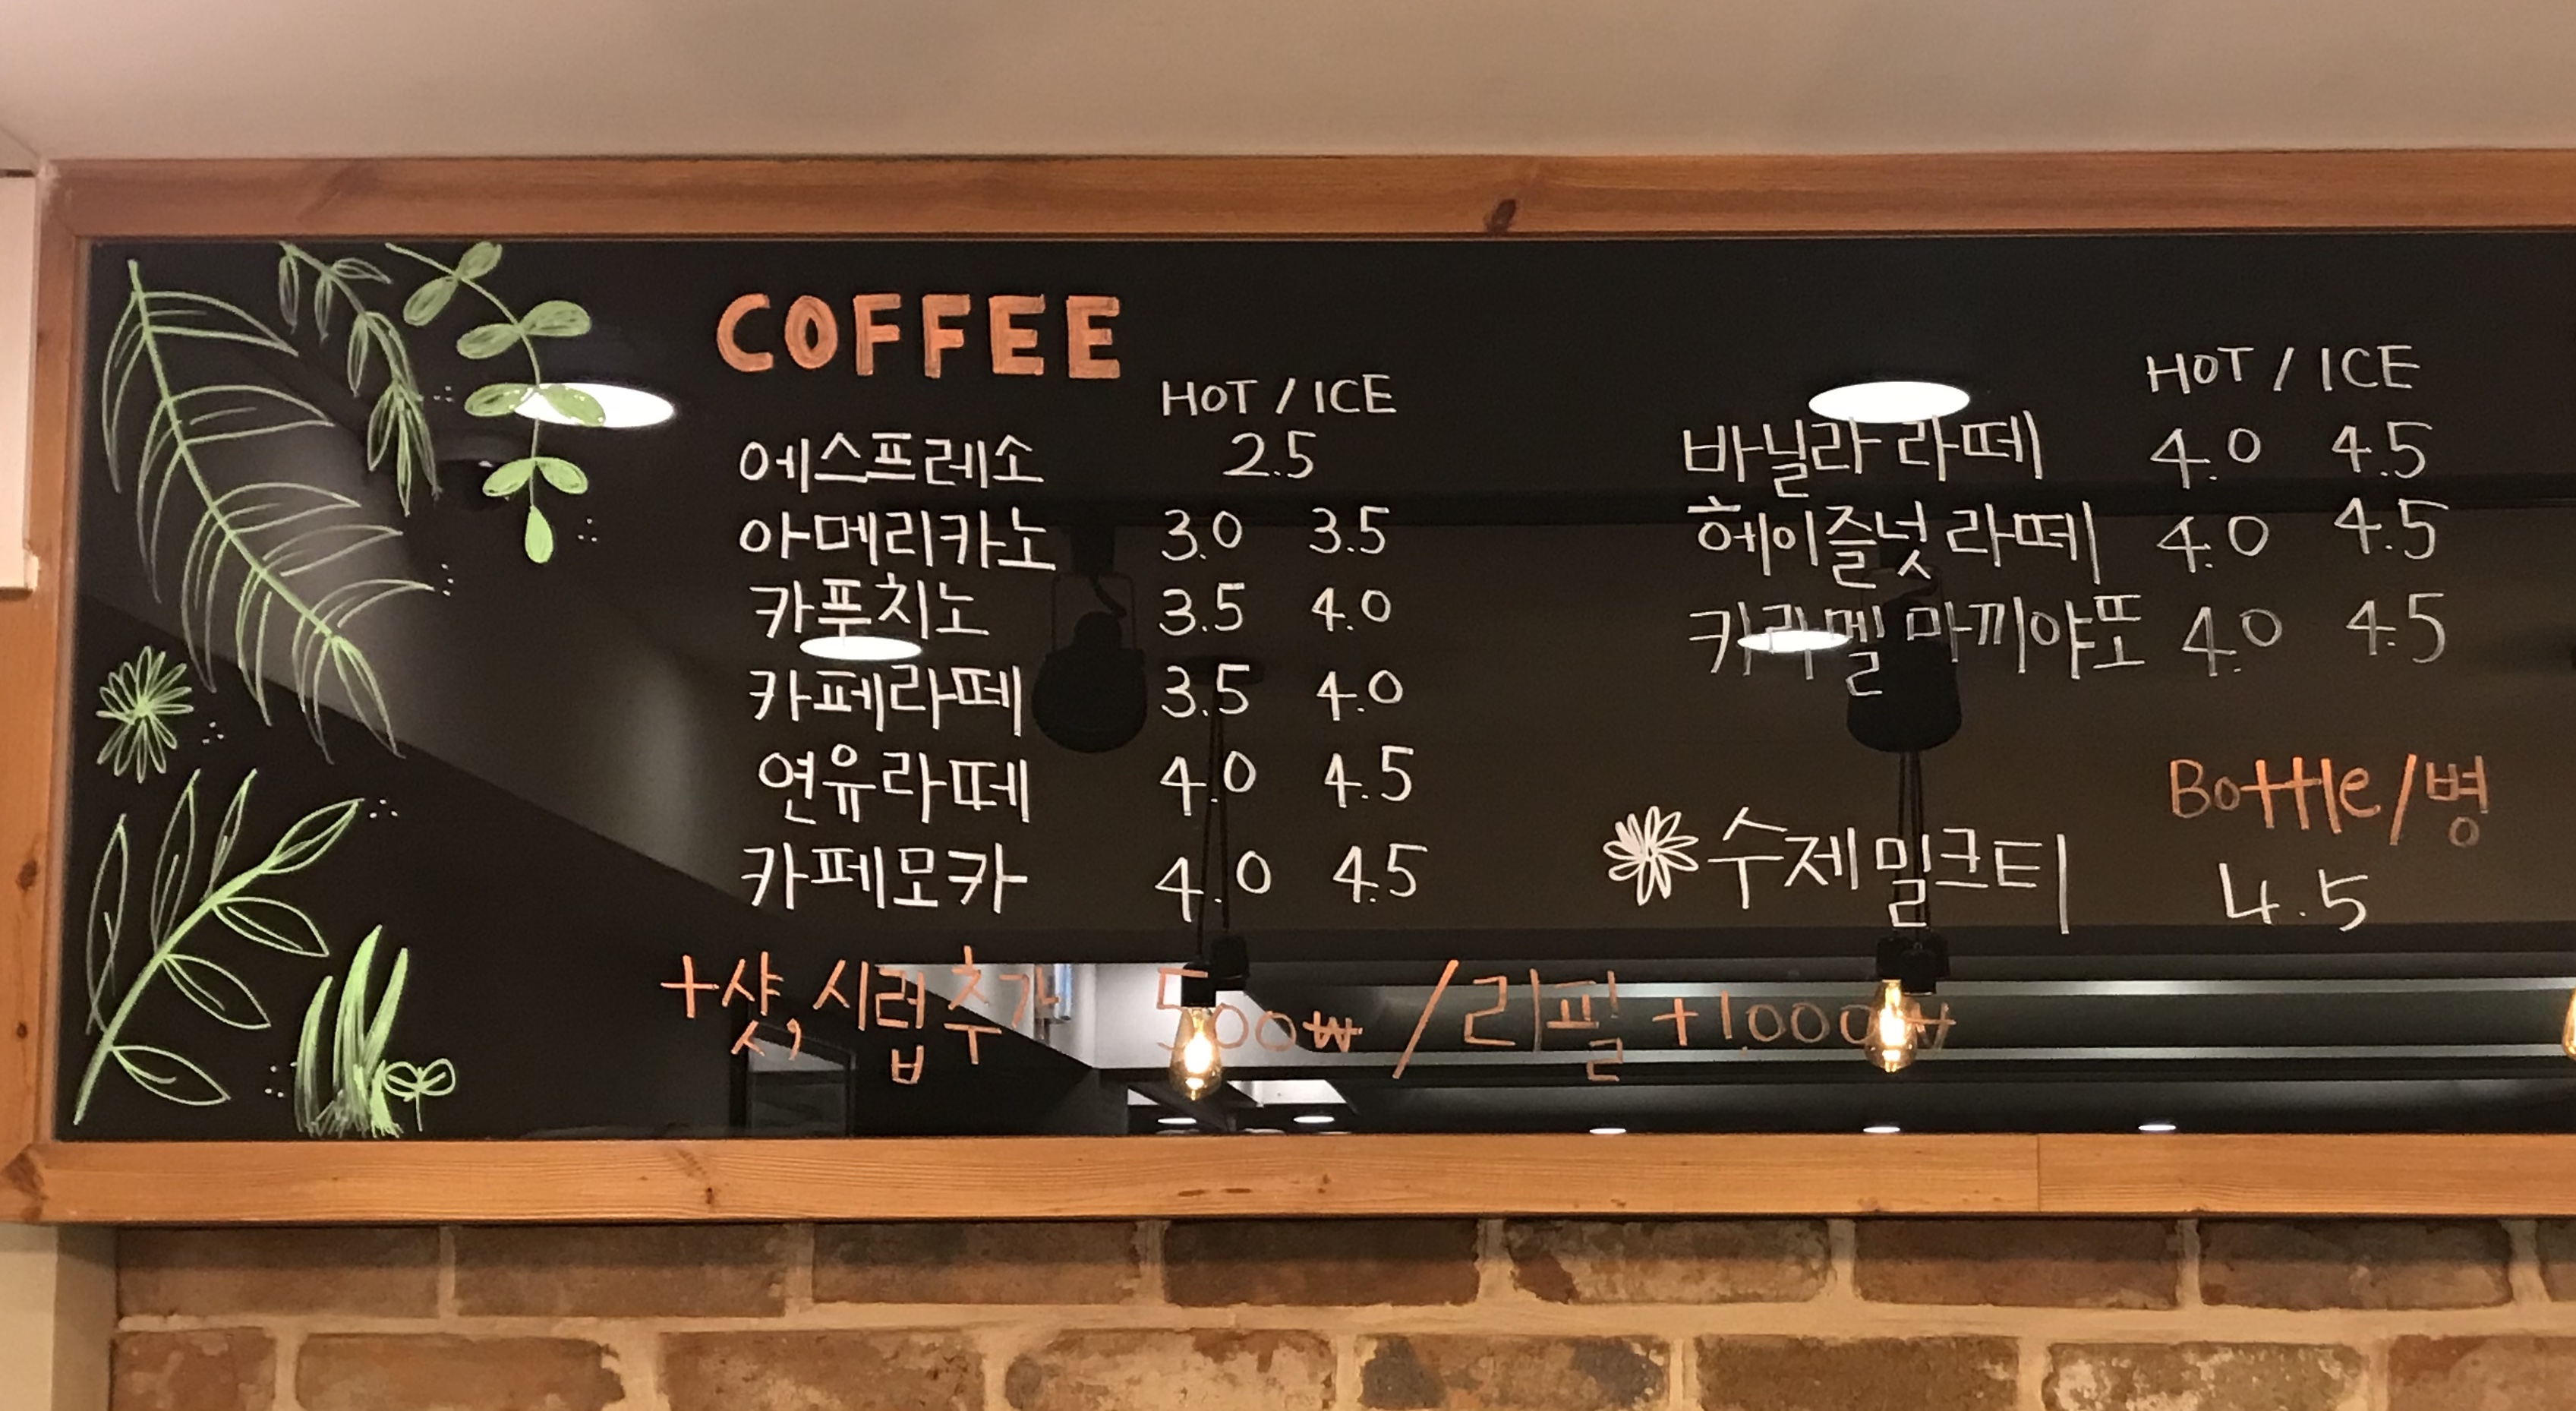 COFFEE
HOT / ICE
에스프레소 2.5
아메리카노 3.0 3.5
카푸치노 3.5 4.0
카페라떼 3.5 4.0
연유라떼 4.0 4.5
카페모카 4.0 4.5
+샷, 시럽추가 500₩ / 리필 +1.000₩
HOT / ICE
바닐라 라떼 4.0 4.5
헤이즐넛 라떼 4.0 4.5
카라멜 마끼야또 4.0 4.5
Bottle/병
수제 밀크티 4.5